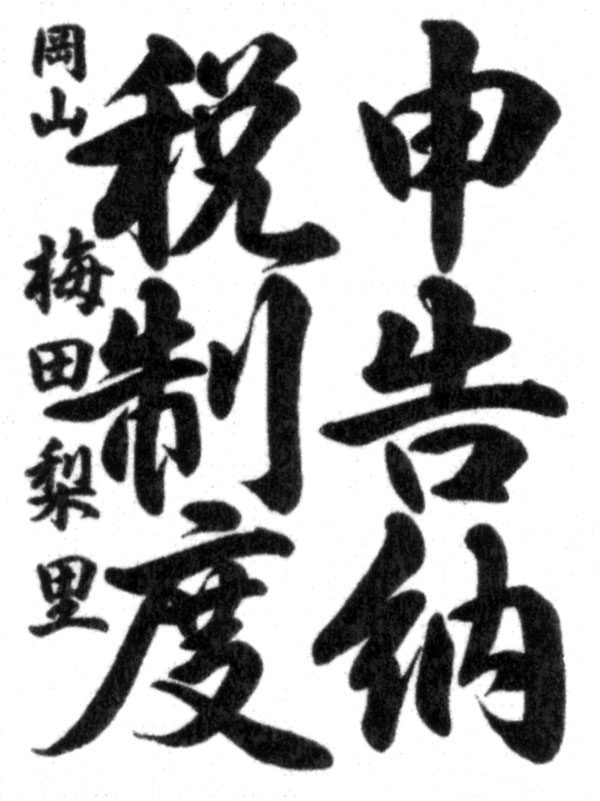 申告納
税制度
岡山 梅田梨里